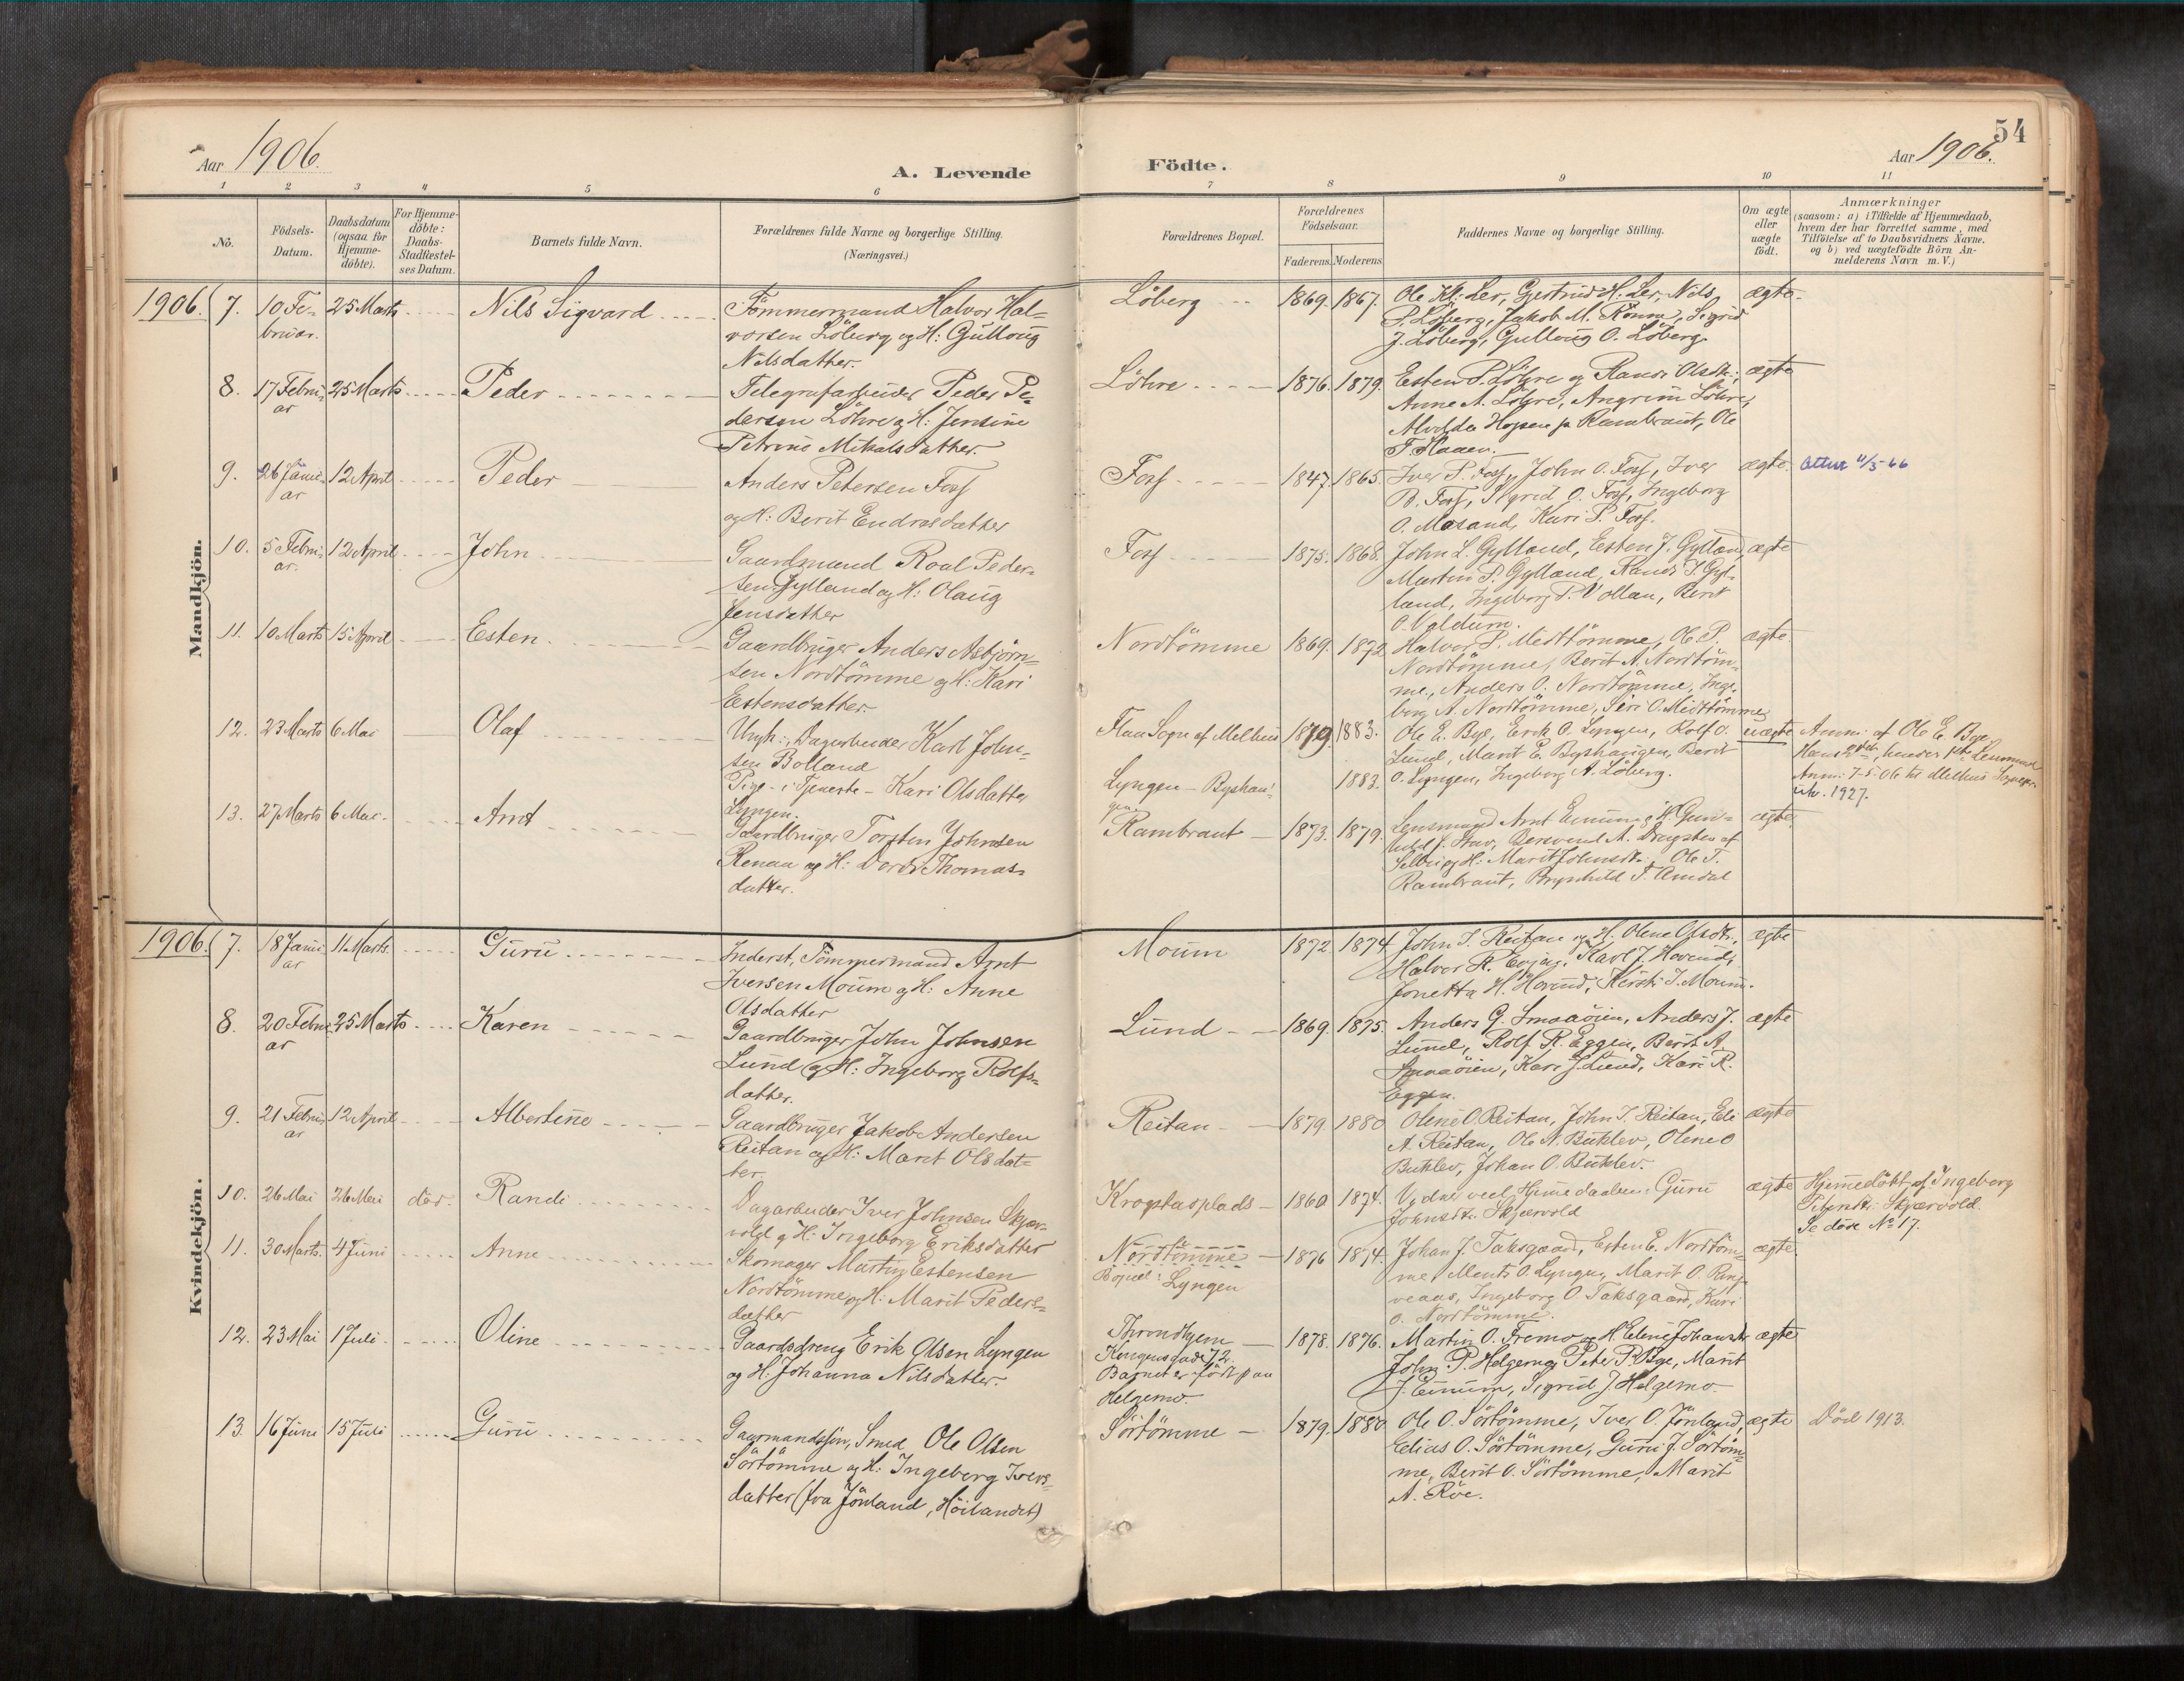 54
Aar 1906.
A. Levende Födte.
Aar 1906.
1 2 3 4 5 6 7 8 9 10 11
No.
Födsels-
Datum.
Daabsdatum
(ogsaa for
Hjemme-
döbte).
For Hjemme-
döbte:
Daabs-
Stadfæstel-
ses Datum.
Barnets fulde Navn.
Forældrenes fulde Navne og borgerlige Stilling.
(Næringsvei.)
Forældrenes Bopæl.
Forældrenes
Födselsaar.
Faderens. Moderens.
Faddernes Navne og borgerlige Stilling.
Om ægte
eller
uægte
födt.
Anmærkninger
(saasom: a) i Tilfælde af Hjemmedaab,
hvem der har forrettet samme, med
Tilföielse af to Daabsvidners Navne,
og b) ved uægtefödte Börn An-
melderens Navn m. V.)
Mandkjön.
1906. 7. 10 Fe-
bruar.
25 Marts
Nils Sigvard
Tömmermand Halvor Hal-
vorsen Löberg og H: Gulloug
Nilsdatter.
Löberg
1869. 1867.
Ole Kl: Ler, Gjertrud H: Ler, Nils
P. Löberg, Jakob M. Rönni, Sigrid
J. Löberg, Gulloug O. Löberg
ægte.
8. 17 Febru-
ar
25 Marts
Peder
Telegrafarbeider Peder Pe-
dersen Löhre og H: Jensine
Petrine Mikalsdatter.
Löhre
1876. 1879.
Esten P. Löhre og Randi Olsdtr.,
Anne A. Löhre, Angrim Löhre,
Alvilda Hopsen fr Rambraut, Ole
T. Haaen.
ægte
9. 26 Janu-
ar
12 April
Peder
Anders Petersen Foss
og H: Berit Endresdatter
Foss
1847. 1865.
Iver P. Foss, John O. Foss, Iver
B. Foss, Sigrid O. Foss, Ingeborg
O. Mosand, Kari P. Foss.
ægte. Attest 11/5-66
10. 5 Febru-
ar.
12 April
John
Gaardmand Roal Peder-
sen Gylland og H: Olaug
Jensdatter
Foss
1875. 1868.
John L. Gylland, Esten J. Gylland,
Martin P. Gylland, Randi J. Gyl-
land, Ingeborg P. Vollan, Berit
O. Valdum.
ægte
11. 10 Marts 15 April
Esten
Gaardbruger Anders Asbjörn-
sen Nordtömme og H: Kari
Estensdatter.
Nordtömme
1869. 1872
Halvor P. Midttömme, Ole P.
Nordtömme, Berit A. Nordtöm-
me, Anders O. Nordtömme, Inge-
borg A. Nordtömme, Siri O. Midttömme
ægte.
12. 23 Marts 6 Mai
Olaf
Ungk:, Dagarbeider Karl John-
sen Bolland
Pige - i Tjeneste - Kari Olsdatter
Lyngen.
Flaa Sogn af Melhus
Lyngen - Byshau-
gen
1879. 1883.
1883.
Ole E. Bye, Erik O. Lyngen, Rolf O.
Lund, Marit E. Byshaugen, Berit
O. Lyngen, Ingeborg A. Löberg.
uægte
Anm: af Ole E. Bye.
Anm: 7-5-06 til Melhus Sognepr.
utv. 1927.
13. 27 Marts 6 Mai.
Arnt
Gaardbruger Torsten Johnsen
Renaa og H: Dordi Thomas-
datter.
Rambraut
1873. 1879.
Lensmand Arnt Einum og H: Gun-
hild J. Hav, Bersvend A. Dragsten af
Selbu og H: Marit Johnsdtr., Ole T.
Rambraut, Brynhild T. Amdal
ægte
Kvindekjön.
1906. 7. 18 Janu-
ar
11 Marts
Guru
Inderst, Tömmermand Arnt
Iversen Moum og H: Anne
Olsdatter
Moum
1872. 1874.
John I. Reitan og H. Olene Olsdtr.,
Halvor R. Evjen, Karl J. Hovind,
Jonetta H. Hovind, Kirsti I. Moum.
ægte
8. 20 Febru-
ar
25 Marts
Karen
Gaardbruger John Johnsen
Lund og H: Ingeborg Rolfs-
datter.
Lund
1869. 1875.
Anders G. Smaaöien, Anders J.
Lund, Rolf R. Eggen, Berit A.
Smaaöien, Kari J. Lund, Kari R.
Eggen.
ægte
9. 21 Febru-
ar
12 April
Albertine
Gaardbruger Jakob Andersen
Reitan og H: Marit Olsdat-
ter
Reitan
1879. 1880
Oline O. Reitan, John I. Reitan, Eli
A. Reitan, Ole A. Buklev, Olene O
Buklev, Johan O. Buklev.
ægte
10. 26 Mai 26 Mai död.
Randi
Dagarbeider Iver Johnsen Skjær-
vold og H: Ingeborg Eriksdatter
Krogstadplads
1860 1874.
Vidne ved Hjemmedaaben: Guru
Johnsdtr. Skjærvold
ægte
Hjemmedöbt af Ingeborg
Petersdtr. Skjærvold.
Se döde No 17.
11. 30 Marts. 4 Juni
Anne
Skomager Martin Estensen
Nordtömme og H: Marit Peders-
datter
Nordtömme
Bopæl: Lyngen
1876 1874.
Johan J. Taksgaard, Esten E. Nordtöm-
me, Ments O. Lyngen, Marit O. Ring-
veaas, Ingeborg O. Taksgaard, Kari
O. Nordtömme.
ægte.
12. 23 Mai 1 Juli
Oline
Gaardsdreng Erik Olsen Lyngen
og H: Johanna Nilsdatter.
Throndhjem
Kongensgade 72
Barnet er födt paa
Helgemo.
1878. 1876.
Martin O. Fremo og H. Eline Johansdtr
John P. Helgemo, Peter P. Bye, Marit
J. Einum, Sigrid J. Helgemo.
ægte
13. 16 Juni 15 Juli
Guru
Gaarmandssön, Smed Ole Olsen
Sörtömme og H: Ingeborg Ivers-
datter (fra Jönland, Höilandet)
Sörtömme
1879. 1880
Ole O. Sörtömme, Iver O. Jönland,
Elias O. Sörtömme, Guru J. Sörtöm-
me, Berit O. Sörtömme, Marit
A. Röe.
ægte Död 1913.